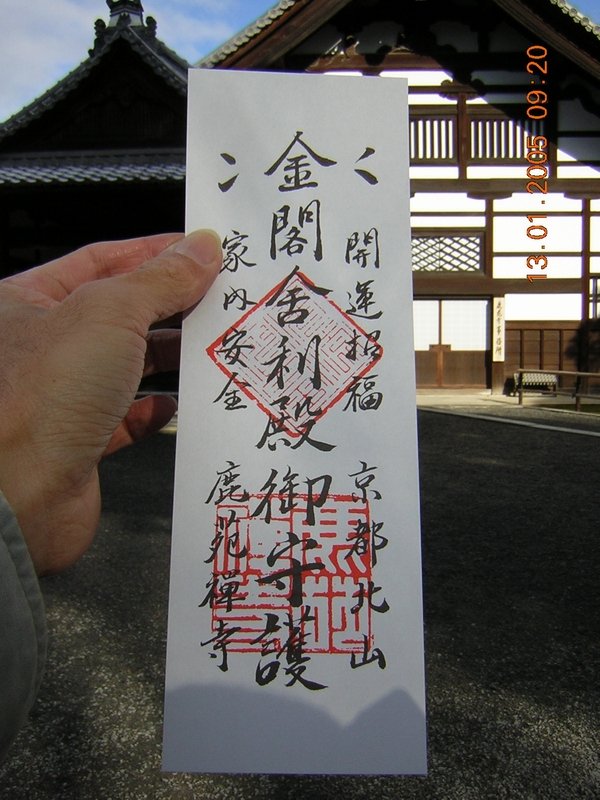 開運招福 京都北山
金閣舎利殿御守護
家内安全 鹿苑禅寺
13.01.2005 09:20